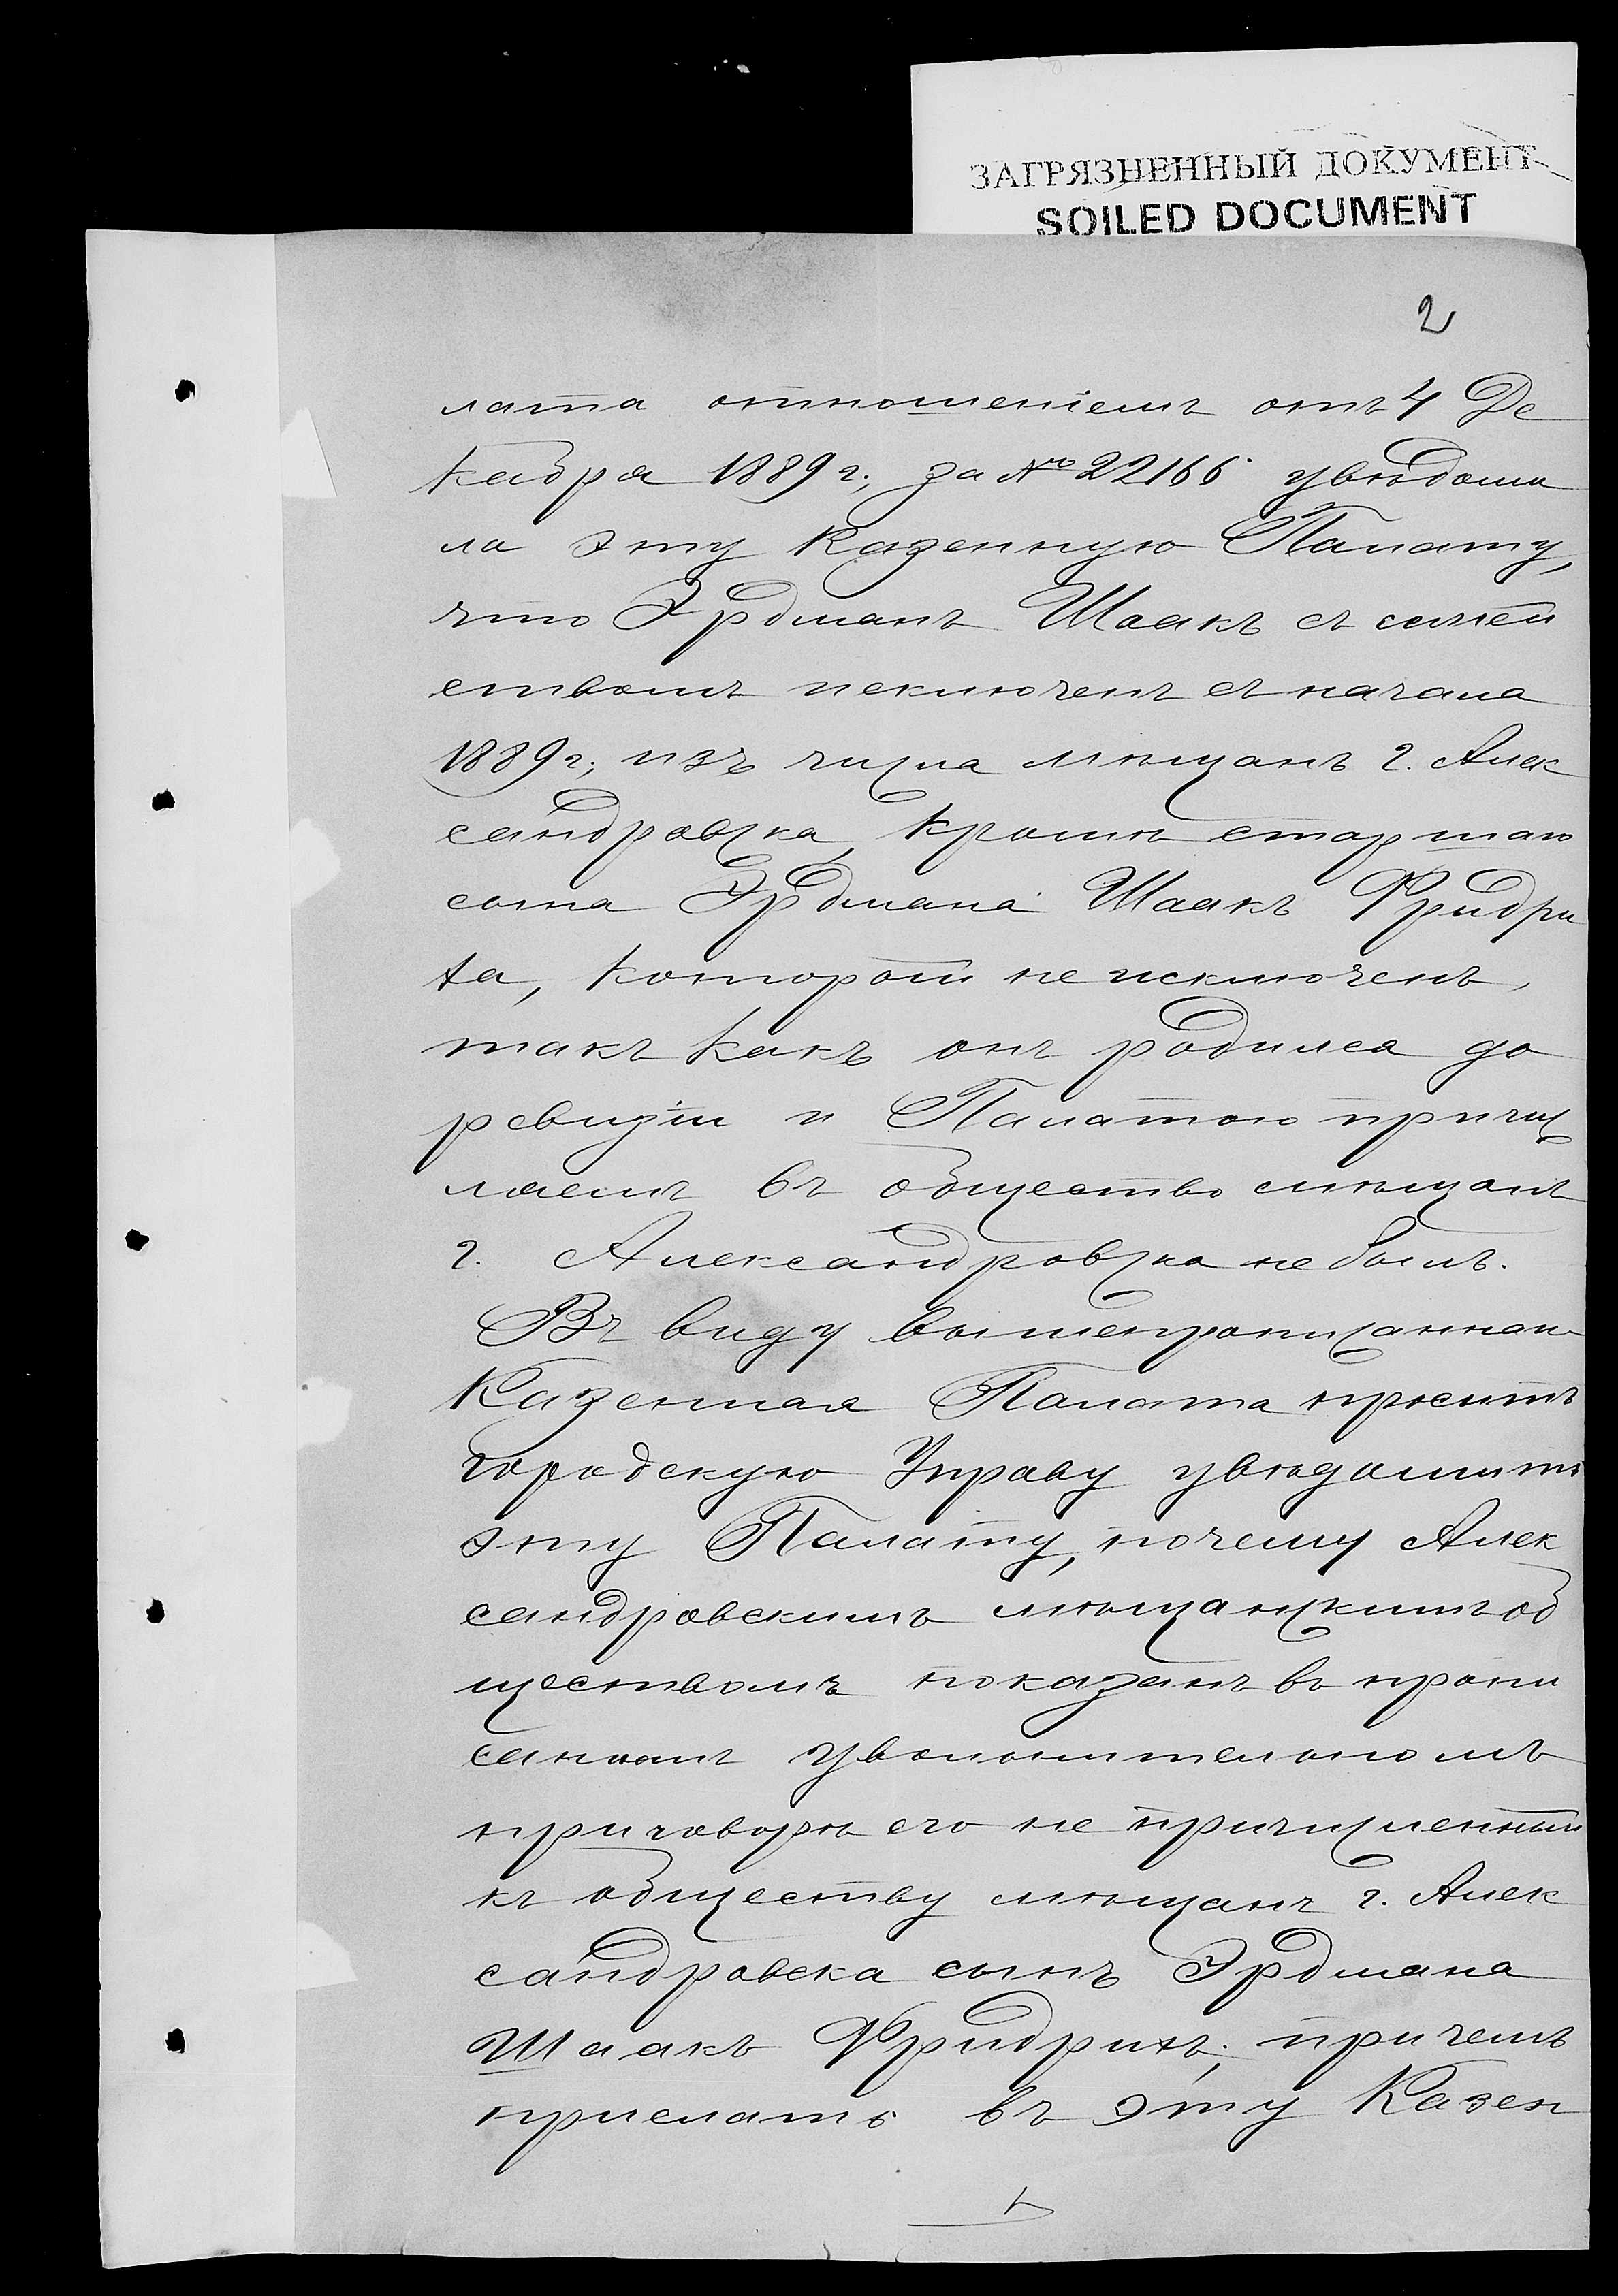 ЗАГРЯЗНЕННЫЙ ДОКУМЕНТ
SOILED DOCUMENT
2
лата отношеніемъ отъ 4 Де
кабря 1889 г., за № 22166 увѣдоми
ла эту Казенную Палату,
что Эрдманъ Шаакъ съ семей
ствомъ исключенъ съ начала
1889 г., изъ числа мѣщанъ г. Алек
сандровска, кромѣ старшаго
сына Эрдмана Шаакъ Фридри
ха, который не исключенъ,
такъ какъ онъ родился до
ревизіи и Палатою причи
ляемъ въ общество мѣщанъ
г. Александровска не былъ.
Въ виду вышепрописаннаго
Казенная Палата проситъ
Городскую Управу увѣдомить
эту Палату, почему Алек
сандровскимъ мѣщанскимъ об
ществомъ показанъ въ пропи
санномъ увольнительномъ
приговорѣ его не причисленный
къ обществу мѣщанъ г. Алек
сандровска сынъ Эрдмана
Шаакъ Фридрихъ, причемъ
прислать въ эту Казен